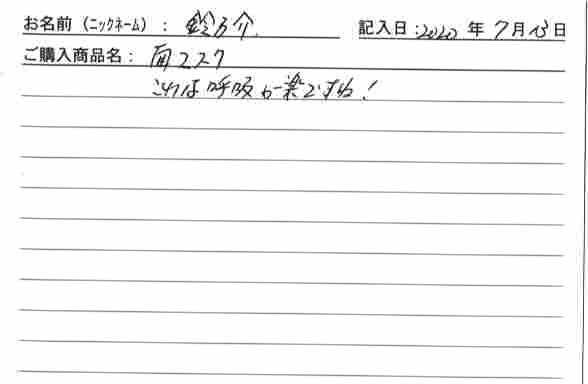 お名前(ニックネーム): 鈴方介 記入日:2020年7月13日
ご購入商品名: 面マスク
これは呼吸が楽ですね!